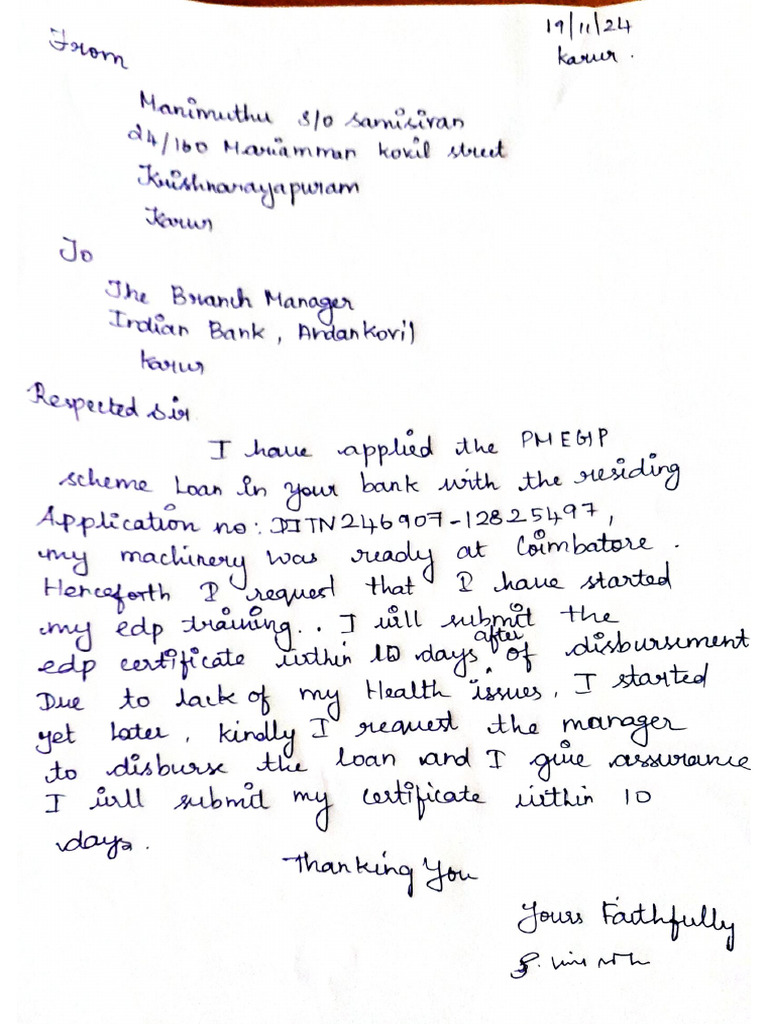 19/11/24
Karur.
From
Manimuthu S/o Samisivan
24/160 Mariamman kovil street
Krishnarayapuram
Karur
To
The Branch Manager
Indian Bank, Andankovil
Karur
Respected Sir
I have applied the PMEGP
scheme Loan in your bank with the residing
Application no: IITN246907-12825497,
my machinery was ready at Coimbatore.
Henceforth I request that I have started
my edp training.. I will submit the
edp certificate within 10 days after of disbursement
Due to lack of my Health issues, I started
yet later, kindly I request the manager
to disburse the loan and I give assurance
I will submit my certificate within 10
days.
Thanking You
Yours Faithfully